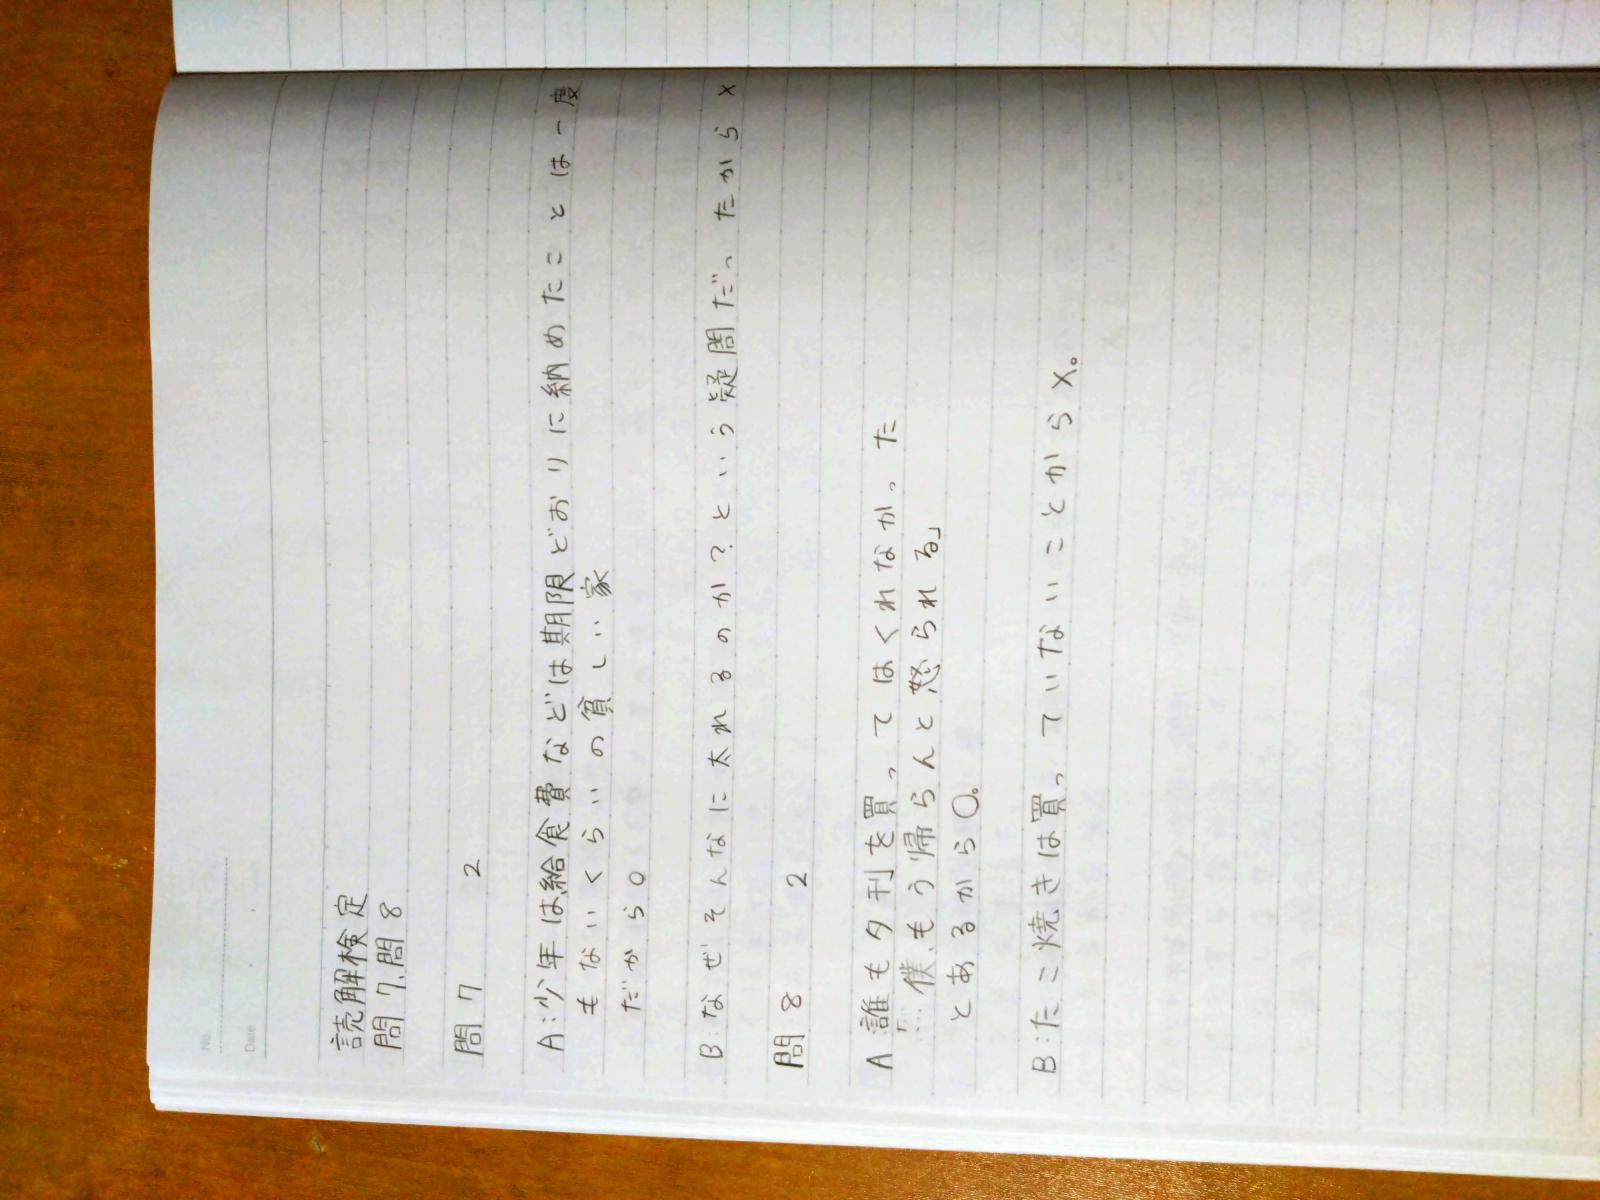 No.
Date
読解検定
問7.問8
問7 2
A:少年は給食費などは期限どおりに納めたことは一度
もないくらいの貧しい家
だから○
B:なぜそんなに太れるのか?という疑問だったから×
問8 2
A 誰も夕刊を買ってはくれなかった
「…僕、もう帰らんと怒られる」
とあるから○。
B:たこ焼きは買っていないことから×。